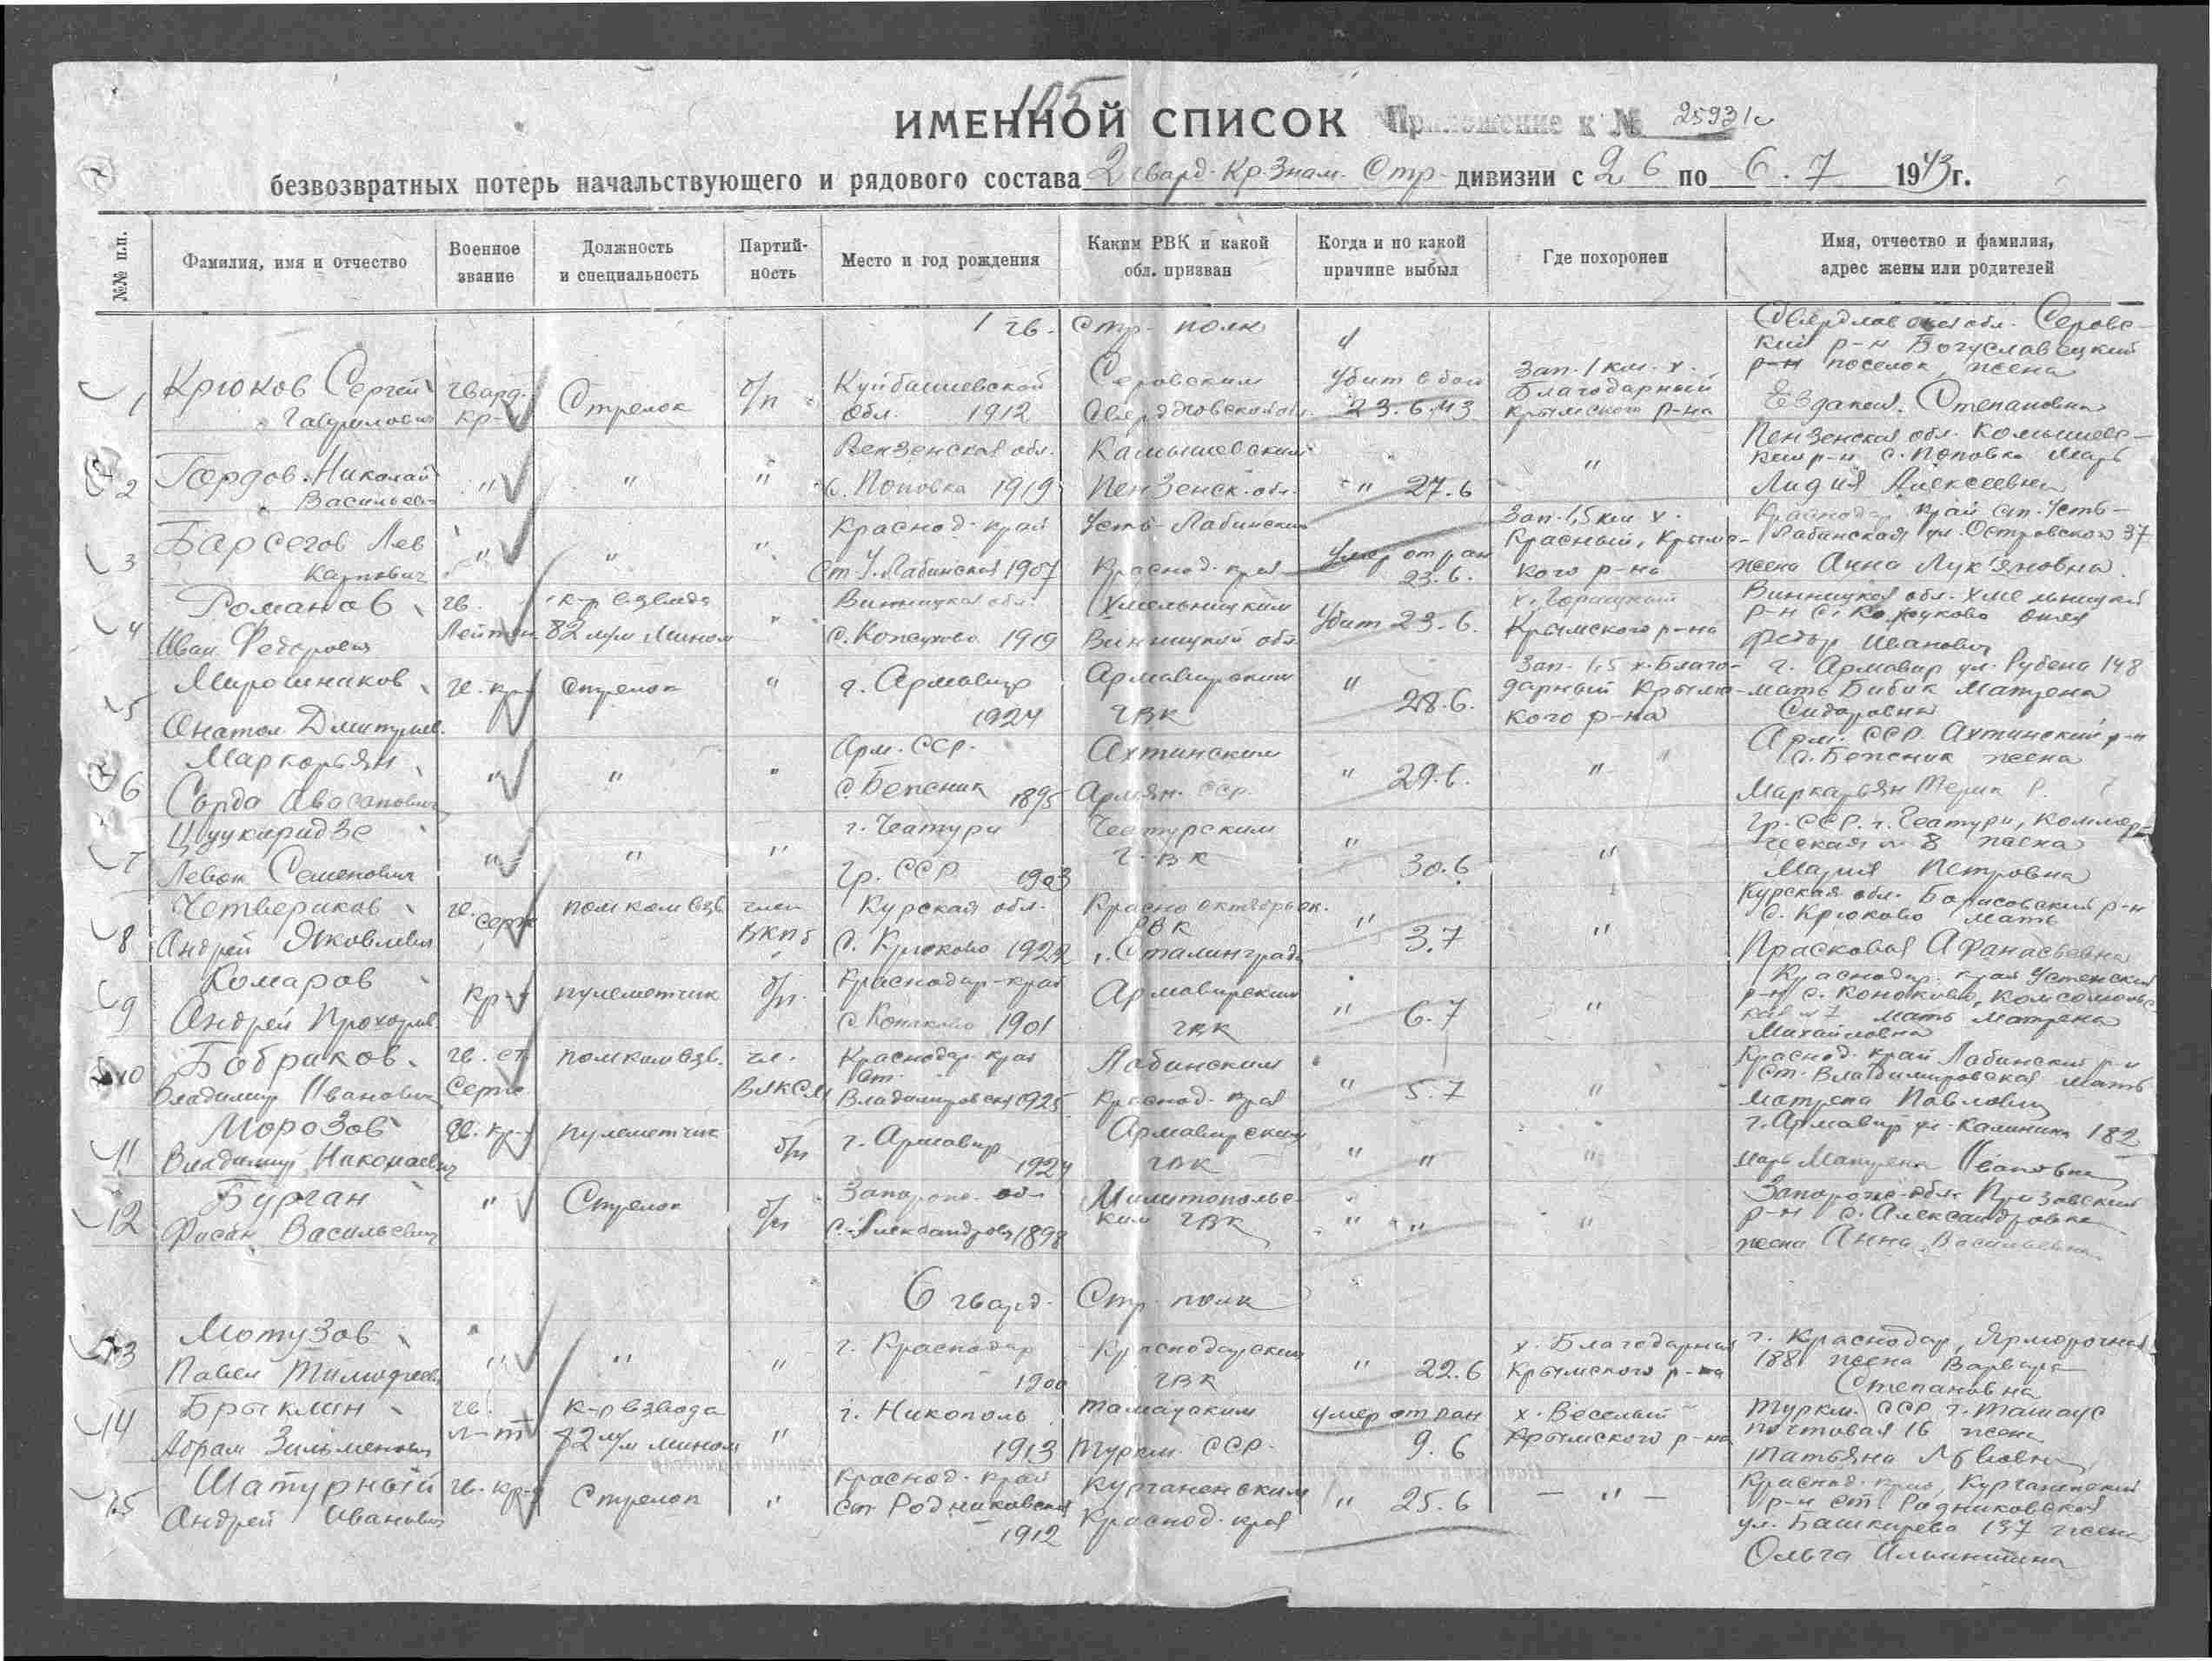 105
ИМЕННОЙ СПИСОК Приложение к № 25931с
безвозвратных потерь начальствующего и рядового состава 2 гвард. Кр. Знам. Стр. дивизии с 2 6 по 6.7 1943 г.
№№ п.п. Фамилия, имя и отчество Военное звание Должность и специальность Партий-ность Место и год рождения Каким РВК и какой обл. призван Когда и по какой причине выбыл Где похоронен Имя, отчество и фамилия, адрес жены или родителей
1 гв. Стр. полк
1 Крюков Сергей Гаврилович гвард. кр-ц Стрелок б/п Куйбышевской обл. 1912 Серовским Свердловской обл. Убит в бою 23.6.43 Зап. 1 км. х. Благодарный Крымского р-на Свердловская обл. Серовский р-н Богуславецкий р-н поселок, жена Евдокия Степановна
2 Гордов Николай Васильев. " " " Пензенская обл. с. Поповка 1919 Камышевским Пензенск. обл. " 27.6 " Пензенская обл. Комышевский р-н с. Поповка мать Лидия Алексеевна
3 Барсегов Лев Карпович " " " Краснод. край ст. У. Лабинская 1907 Усть-Лабинским Краснод. края Умер от ран 23.6. Зап. 1,5 км х. Красный, Крымского р-на Краснодар. край ст. Усть-Лабинская ул. Островского 37 жена Анна Лукяновна
4 Романов Иван Федорович гв. Лейтен. к-р взвода 82 м/м мином " Винницкая обл. 1919 Хмельницким Винницкой обл. Убит 23.6. х. Горищный Крымского р-на Винницкая обл. Хмельницкий р-н отец Федор Иванович
5 Мирошников Анатол Дмитриев. гв. кр-ц Стрелок " г. Армавир 1924 Армавирским ГВК " 28.6. Зап. 1,5 х. Благодарный Крымского р-на г. Армавир ул. Рубена 148 мать Бибик Матрена Сидоровна
6 Маркарьян " " " Арм. ССР. с. Бепсник 1895 Ахтинским Армян. ССР. " 29.6. " Арм. ССР. Ахтинский р-н с. Бепсник жена Маркарьян
7 Цуцкиридзе Левон Семенович " " " г. Чеатури Гр. ССР 1903 Чеатурским Г.ВК " 30.6 " Гр. ССР. г. Чеатури, Коммерческая 8 жена Мария Петровна
8 Четвериков Андрей Яковлевич гв. серж помком взв член ВКПб Курская обл. с. Крюково Красно октябрьск. РВК г. Сталинграда " 3.7 " Курская обл. Борисовский р-н с. Крюково мать Прасковья Афанасьевна
9 Комаров Андрей Прохоров. кр-ц пулеметчик б/п. Краснодар. край с. Коноково 1901 Армавирским ГВК " 6.7 " Краснодар. край Успенский р-н с. Коноково, Комсомольская 7 мать Матрена Михайловна
10 Бобриков Владимир Иванович гв. ст. Серж помкомвзв. чл. ВЛКСМ Краснодар. край ст. Владимировская 1925 Лабинским Краснод. края " 5.7 " Краснод. край Лабинский р-н ст. Владимировская мать Матрена Павловна
11 Морозов Владимир Николаевич гв. кр-ц пулеметчик б/п г. Армавир 1924 Армавирским ГВК " " " г. Армавир ул. Калинина 182 мать Матрена Ивановна
12 Бурган Васильевич " Стрелок б/п Запорож. об. с. Александровка 1898 Милитопольским ГВК " " " Запорож. обл. Приазовский р-н с. Александровка жена Анна Васильевна
6 гвард. Стр. полк
13 Мотузов Павел Тимофеев. " " " г. Краснодар 1900 Краснодарским ГВК " 22.6 х. Благодарный Крымского р-на г. Краснодар, Ярморочная 188 жена Варвара Степановна
14 Брыклин Абрам Зильменович гв. л-т к-р взвода 82 м/м мином " г. Никополь 1913 Ташаузским Туркм. ССР. умер от ран 9.6 х. Веселый Крымского р-на Туркм. ССР г. Ташауз почтовая 16 жена Татьяна Львовна
15 Шатурный Андрей Иванович гв. кр-ц Стрелок " Краснод. край ст. Родниковская 1912 Курганенским Краснод. края " 25.6 — " — Краснод. край, Курганенский р-н ст. Родниковская ул. Башкирева 137 жена Ольга